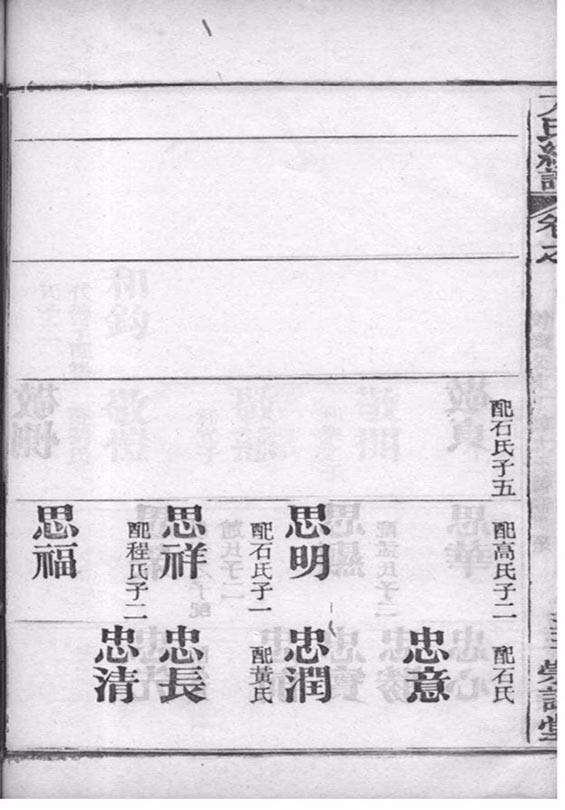 配石氏子五
配高氏子二
配石氏
忠意
思明
忠潤
配石氏子一
配黃氏
思祥
忠長
配程氏子二
忠清
思福